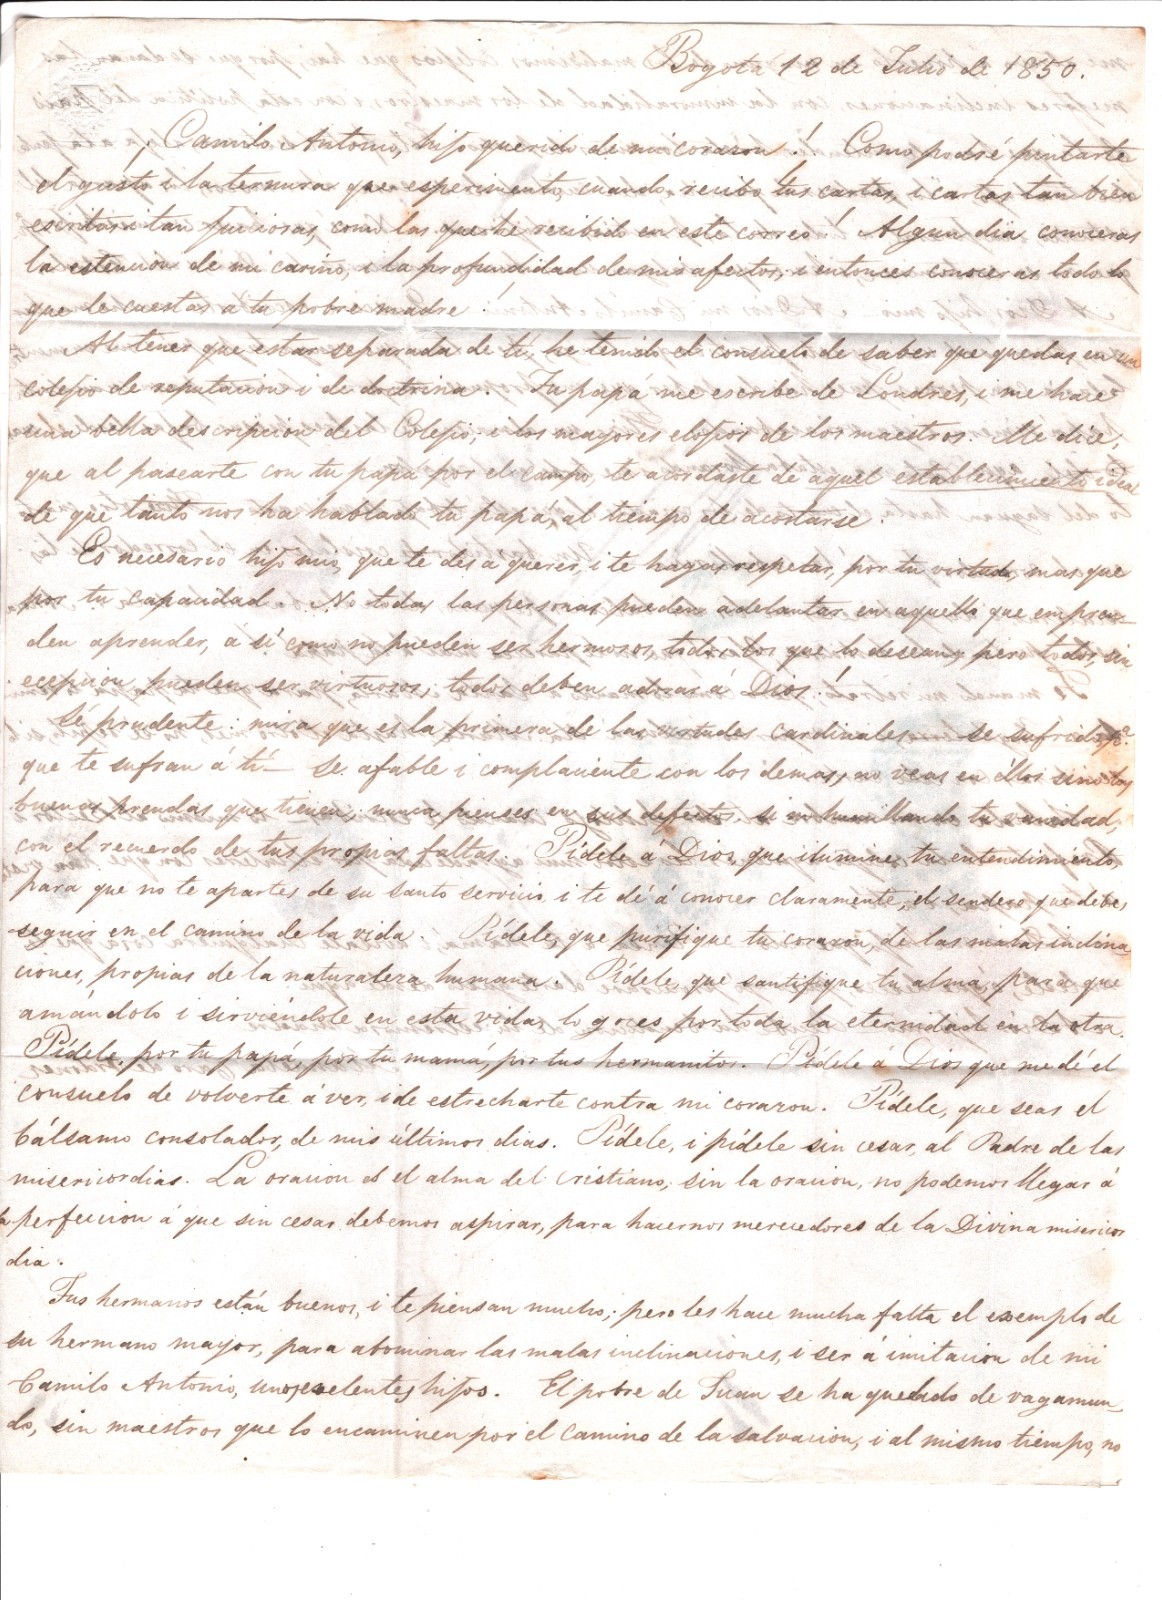 Bogotá 12 de Julio de 1850.
¡Camilo Antonio, hijo querido de mi corazon! Como podré pintarte
el gusto i la ternura que esperimento, cuando recibo tus cartas, i cartas tan bien
escritas i tan juiciosas, como las que he recibido en este correo! Algun dia conoceras
la estencion de mi cariño, i la profundidad de mis afectos, i entonces conoceras todo lo
que le cuestas a tu pobre madre!
Al tener que estar separada de tí, he tenido el consuelo de saber que quedas en un
colejio de reputacion i de doctrina. Tu papá me escribe de Londres, i me hace
una bella descripcion del Colejio, i los mayores elojios de los maestros. Me dice,
que al pasearte con tu papá por el campo, te acordaste de aquel establecimiento ideal
de que tanto nos ha hablado tu papá, al tiempo de acostarse.
Es necesario hijo mio, que te des á querer, i te hagas respetar, por tu virtud, mas que
por tu capacidad. No todas las personas pueden adelantar en aquello que empren-
den aprender, a sí como no pueden ser hermosos, todos los que lo desean; pero todos, sin
ecepcion pueden ser virtuosos; todos deben adorar á Dios!
Sé prudente: mira que es la primera de las virtudes cardinales — se sufrido pa.
que te sufran á tí — Se afable i complaciente con los demas, no veas en éllos sino las
buenas prendas que tienen; nunca pienses en sus defectos, si no humillando tu vanidad,
con el recuerdo de tus propias faltas. Pídele á Dios, que ilumine tu entendimiento,
para que no te apartes de su santo servicio, i te dé á conocer claramente, el sendero que debes
seguir en el camino de la vida. Pídele, que purifique tu corazon, de las malas inclina
ciones, propias de la naturaleza humana. Pídele, que santifique tu alma, para que
amándolo i sirviéndole en esta vida, lo goces por toda la eternidad en la otra.
Pídele, por tu papá, por tu mamá, por tus hermanitos. Pídele á Dios que me dé el
consuelo de volverte á ver, i de estrecharte contra mi corazon. Pídele, que seas el
bálsamo consolador, de mis últimos dias. Pídele, i pídele sin cesar, al Padre de las
misericordias. La oracion es el alma del cristiano; sin la oracion, no podemos llegar á
la perfeccion á que sin cesar debemos aspirar, para hacernos merecedores de la Divina misericor
dia.
Tus hermanos están buenos, i te piensan mucho; pero les hace mucha falta el exemplo de
su hermano mayor, para abominar las malas inclinaciones, i ser á imitacion de mi
Camilo Antonio, unos exelentes hijos. El pobre de Juan se ha quedado de vagamun-
do, sin maestros que lo encaminen por el camino de la salvacion, i al mismo tiempo, no